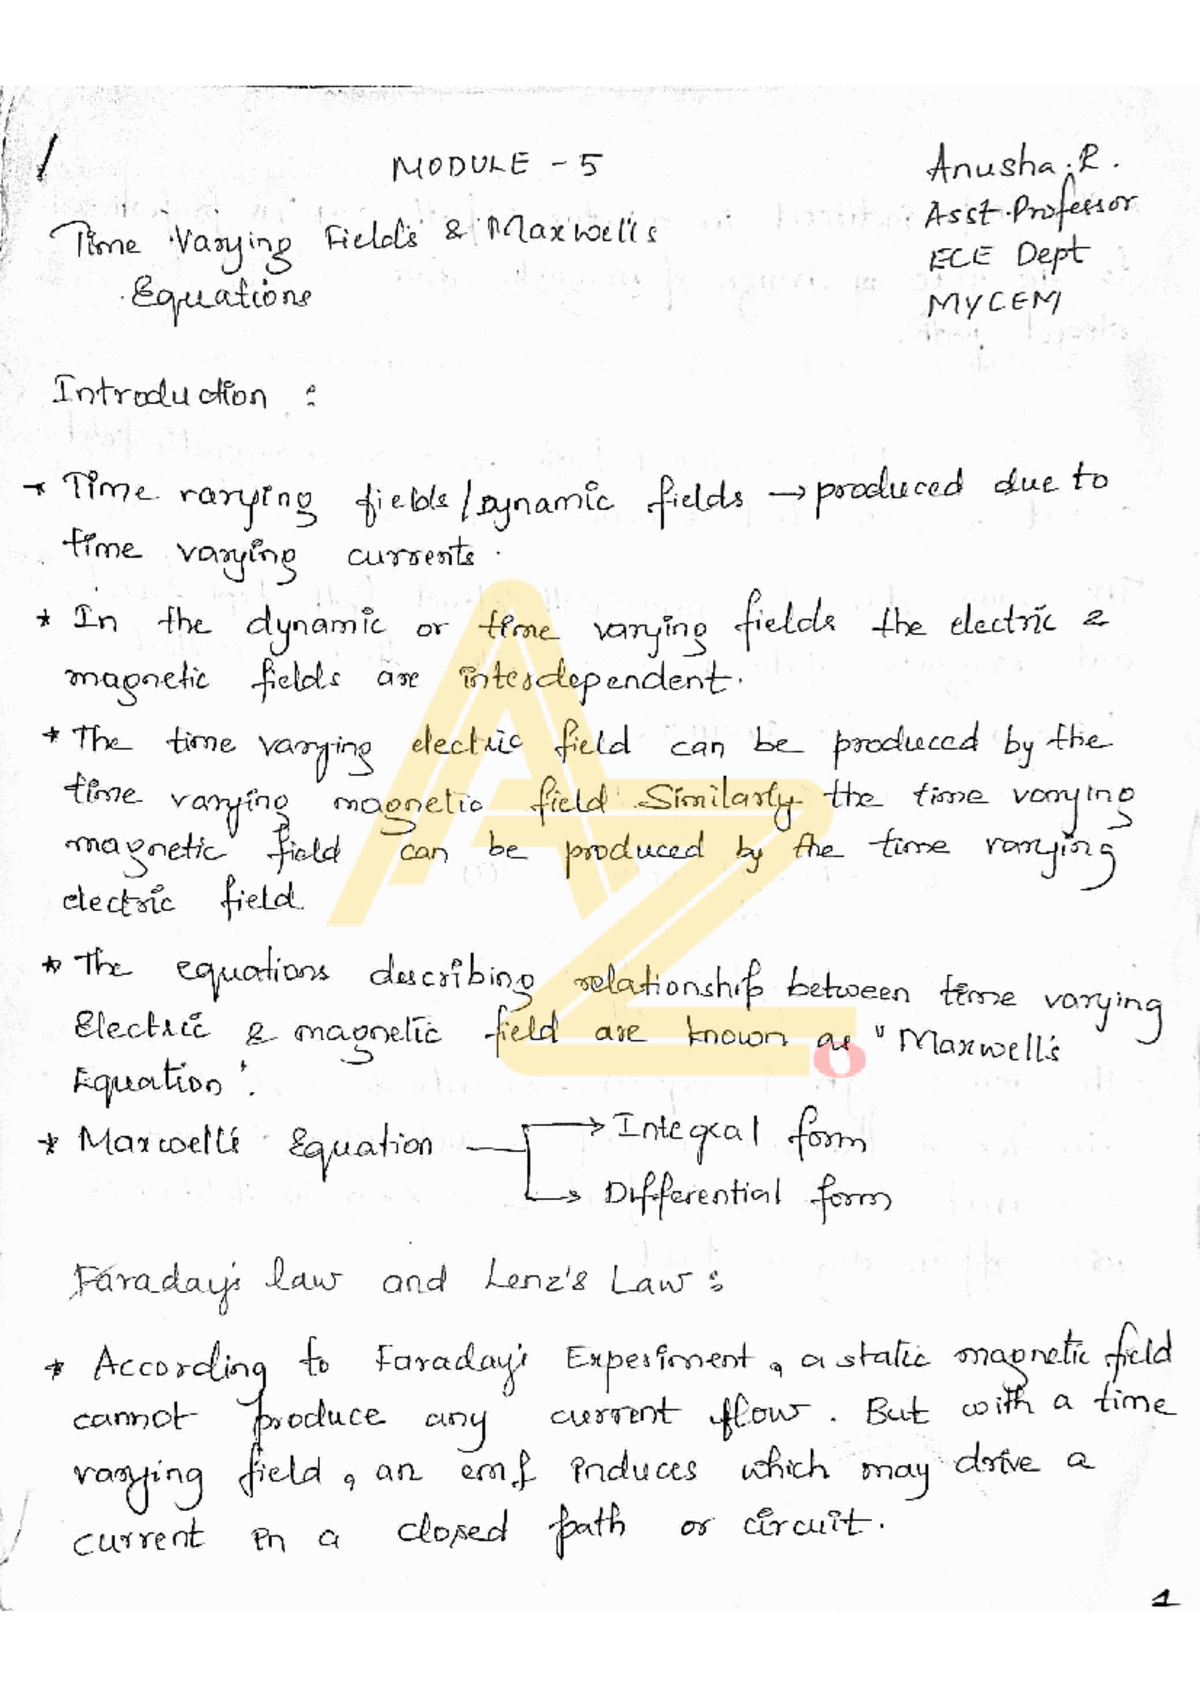 MODULE - 5
Anusha.R.
Asst.Professor
ECE Dept
MYCEM
Time Varying Fields & Maxwell's
Equations
Introduction :
* Time varying fields/Dynamic fields → produced due to
time varying currents.
* In the dynamic or time varying fields the electric &
magnetic fields are interdependent.
* The time varying electric field can be produced by the
time varying magnetic field Similarly the time varying
magnetic field can be produced by the time varying
electric field.
* The equations describing relationship between time varying
Electric & magnetic field are known as "Maxwell's
Equation".
* Maxwell's Equation → Integral form
→ Differential form
Faraday's law and Lenz's Law :
* According to Faraday's Experiment, a static magnetic field
cannot produce any current flow. But with a time
varying field, an emf induces which may drive a
current in a closed path or circuit.
1
AZO